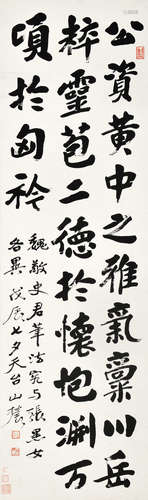 公資黃中之雅氣稟川岳
粹靈苞二德於懷抱淵万
頃於匈衿
魏敬史君筆法宛与張黑女
各異戊辰七夕天台山農